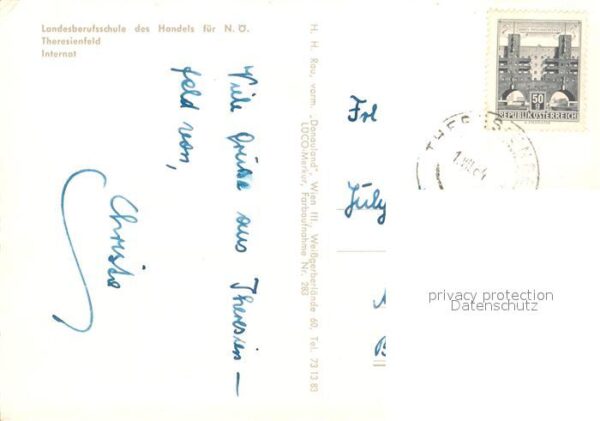 Landesberufsschule des Handels für N. Ö.
Theresienfeld
Internat
Viele Grüße aus Theresien-
feld von,
Christa
H. H. Rau, vorm. „Donauland", Wien III., Weißgerberlände 60, Tel. 73 13 83
LUCO-Merkur, Farbaufnahme Nr. 283
50
REPUBLIK ÖSTERREICH
Frl
July
privacy protection
Datenschutz